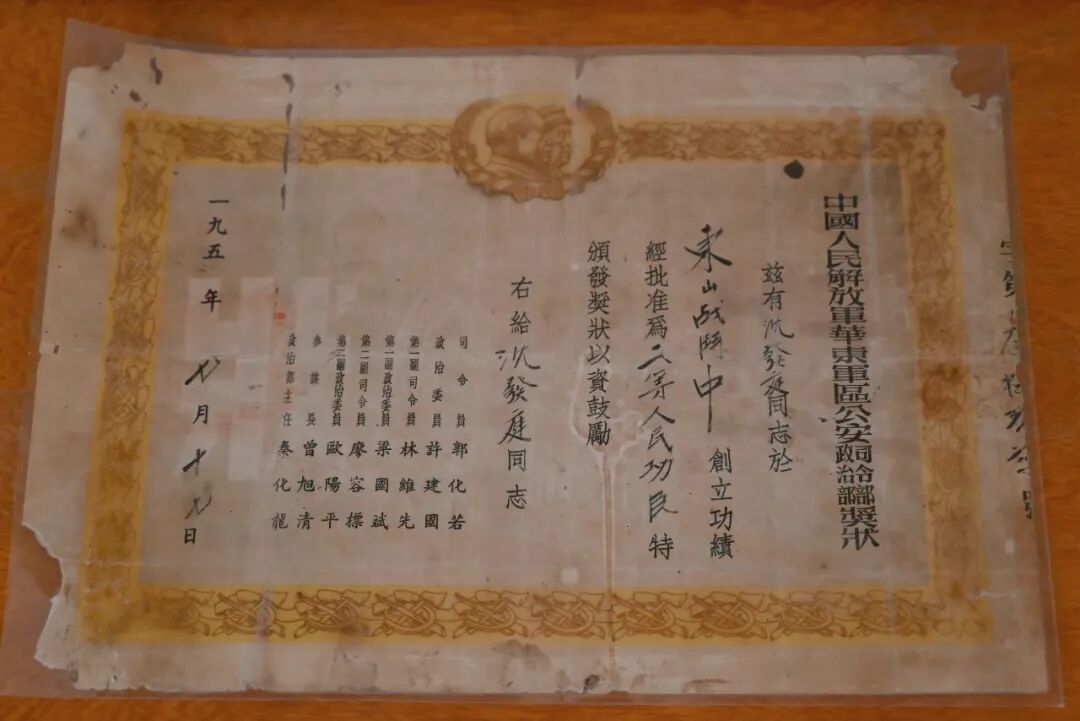 中國人民解放軍華東軍區公安司令部政治部獎狀
兹有沈發庭同志於
東山战鬥中創立功績
經批准爲二等人民功臣特
頒發獎狀以資鼓勵
右給沈發庭同志
司令員郭化若
政治委員許建國
第一副司令員林維先
第一副政治委員梁國斌
第二副司令員廖容標
第二副政治委員歐陽平
參謀長曾旭清
政治部主任秦化龍
一九五 年七月十七日